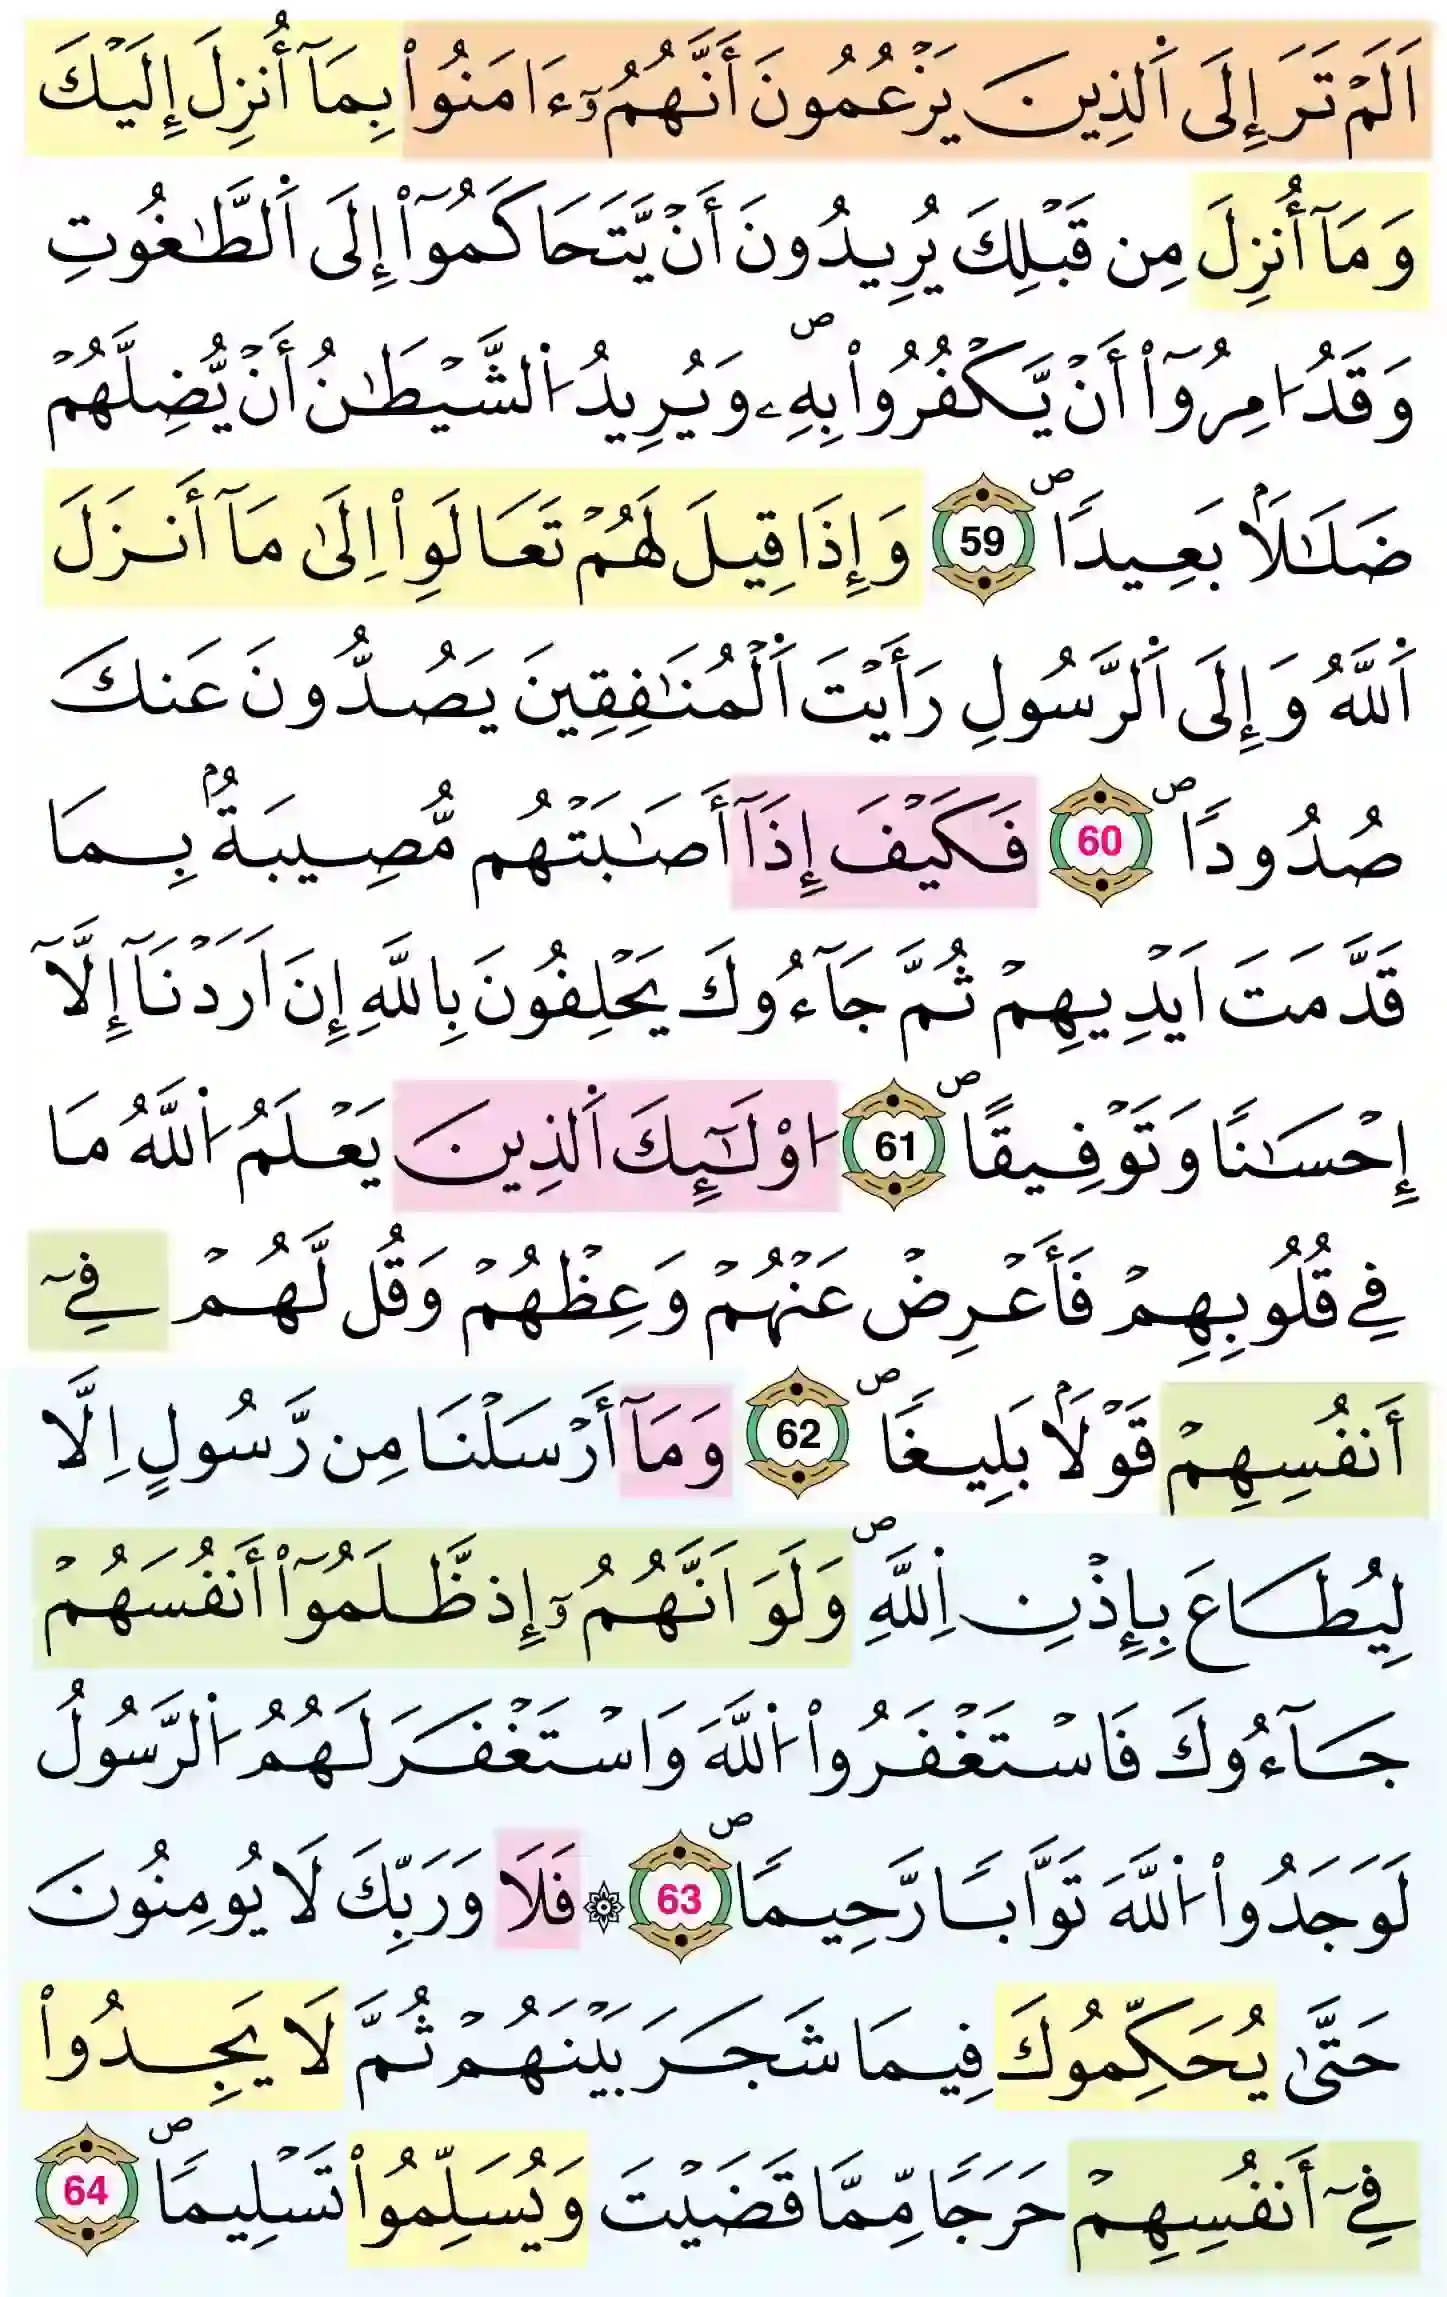 اَلَمْ تَرَ إِلَى اَ۬لذِينَ يَزْعُمُونَ أَنَّهُمُۥٓ ءَامَنُواْ بِمَآ أُنزِلَ إِلَيْكَ
وَمَآ أُنزِلَ مِن قَبْلِكَ يُرِيدُونَ أَنْ يَّتَحَاكَمُوٓاْ إِلَى اَ۬لطَّٰغُوتِ
وَقَدُ ا۟مِرُوٓاْ أَنْ يَّكْفُرُواْ بِهِۦ ۖ وَيُرِيدُ اُ۬لشَّيْطَٰنُ أَنْ يُّضِلَّهُمْ
ضَلَٰلَاۢ بَعِيداٗ ۖ 59 وَإِذَا قِيلَ لَهُمْ تَعَالَوِاْ اِلَىٰ مَآ أَنزَلَ
اَ۬للَّهُ وَإِلَى اَ۬لرَّسُولِ رَأَيْتَ اَ۬لْمُنَٰفِقِينَ يَصُدُّونَ عَنكَ
صُدُوداٗ ۖ 60 فَكَيْفَ إِذَآ أَصَٰبَتْهُم مُّصِيبَةُۢ بِمَا
قَدَّمَتَ اَيْدِيهِمْ ثُمَّ جَآءُوكَ يَحْلِفُونَ بِاللَّهِ إِنَ اَرَدْنَآ إِلَّآ
إِحْسَٰناٗ وَتَوْفِيقاًۖ 61 ا۟وْلَٰٓئِكَ اَ۬لذِينَ يَعْلَمُ اُ۬للَّهُ مَا
فِے قُلُوبِهِمْ فَأَعْرِضْ عَنْهُمْ وَعِظْهُمْ وَقُل لَّهُمْ فِےٓ
أَنفُسِهِمْ قَوْلَاۢ بَلِيغاٗ ۖ 62 وَمَآ أَرْسَلْنَا مِن رَّسُولٍ اِلَّا
لِيُطَاعَ بِإِذْنِ اِ۬للَّهِ ۖ وَلَوَ اَنَّهُمُۥٓ إِذ ظَّلَمُوٓاْ أَنفُسَهُمْ
جَآءُوكَ فَاسْتَغْفَرُواْ اُ۬للَّهَ وَاسْتَغْفَرَ لَهُمُ اُ۬لرَّسُولُ
لَوَجَدُواْ اُ۬للَّهَ تَوَّاباٗ رَّحِيماٗ ۖ 63 ۞ فَلَا وَرَبِّكَ لَا يُومِنُونَ
حَتَّىٰ يُحَكِّمُوكَ فِيمَا شَجَرَ بَيْنَهُمْ ثُمَّ لَا يَجِدُواْ
فِےٓ أَنفُسِهِمْ حَرَجاٗ مِّمَّا قَضَيْتَ وَيُسَلِّمُواْ تَسْلِيماٗ ۖ 64